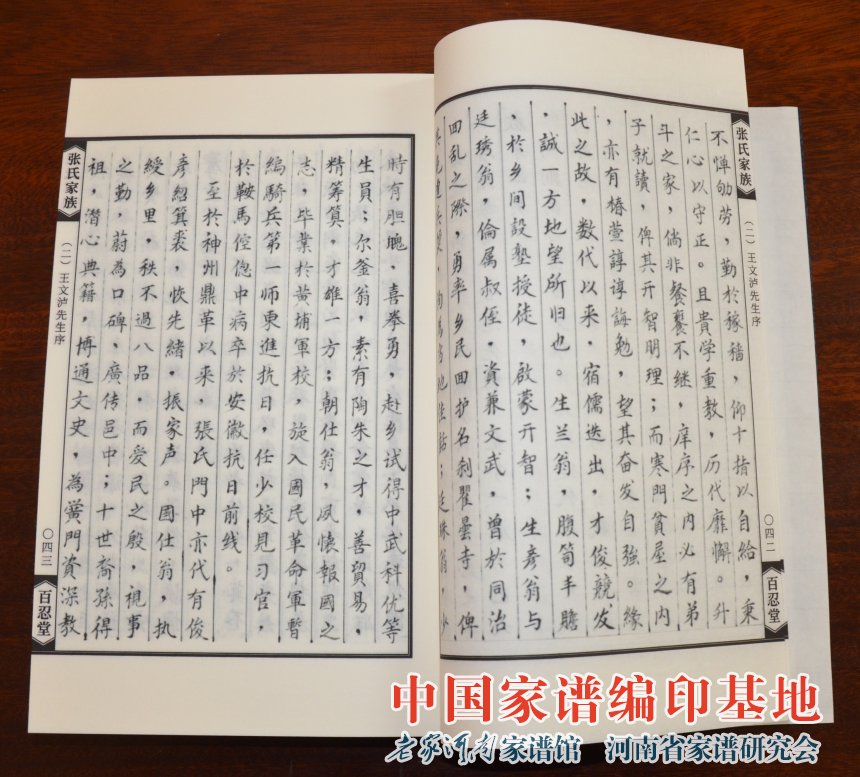 张氏家族
(二)王文泸先生序
〇四二
百忍堂
不惮劬劳，勤於稼穑，仰十指以自给，秉
仁心以守正。且貴学重教，历代靡懈。升
斗之家，倘非餐饔不继，庠序之内必有弟
子就讀，俾其开智明理；而寒門貧屋之内
，亦有椿萱諄諄誨勉，望其奋发自強。緣
此之故，数代以来，宿儒迭出，才俊競发
，誠一方地望所归也。生兰翁，腹笥丰贍
，於乡间設塾授徒，啟蒙开智；生彦翁与
廷琇翁，倫属叔侄，資兼文武，曾於同治
回乱之際，勇率乡民回护名刹瞿曇寺，俾
张氏家族
(二)王文泸先生序
〇四三
百忍堂
時有胆魄，喜拳勇，赴乡试得中武科优等
生員；尔釜翁，素有陶朱之才，善貿易，
精筹算，才雄一方；朝仕翁，夙懐報國之
志，毕業於黄埔軍校，旋入國民革命軍暫
編騎兵第一师東進抗日，任少校見习官，
於鞍馬倥傯中病卒於安徽抗日前线。
至於神州鼎革以来，張氏門中亦代有俊
彦紹箕裘，恢先緒，振家声。國仕翁，执
綬乡里，秩不過八品，而爱民之殷，視事
之勤，蔚為口碑，廣传邑中；十世裔孫得
祖，潜心典籍，博通文史，為黉門資深教
中国家谱编印基地
老家河南家谱馆 河南省家谱研究会